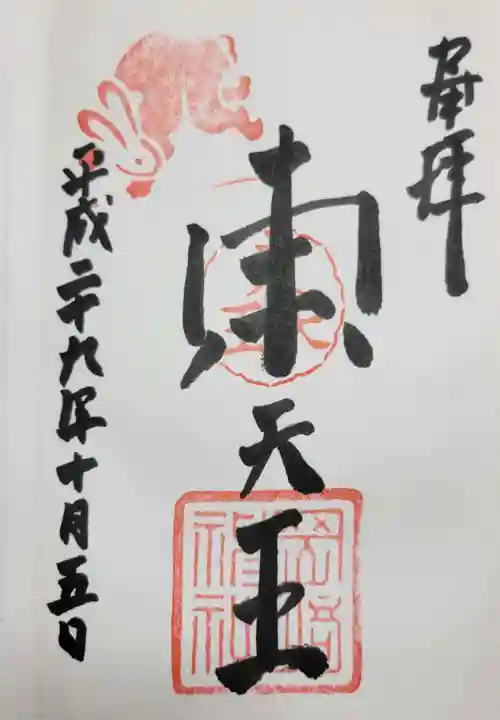 奉拝
東天王
岡崎神社
平成二十九年十月五日